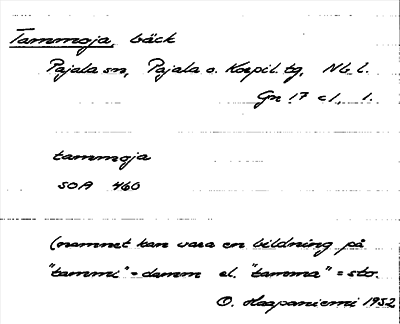 Tammoja, bäck
Pajala sn, Pajala o. Korpil. tg, Nb. l.
Gn 17 c1, 1.
tammoja
SOA 460
(namnet kan vara en bildning på
"tammi" = damm el. "tamma" = sto.
O. Haapaniemi 1932